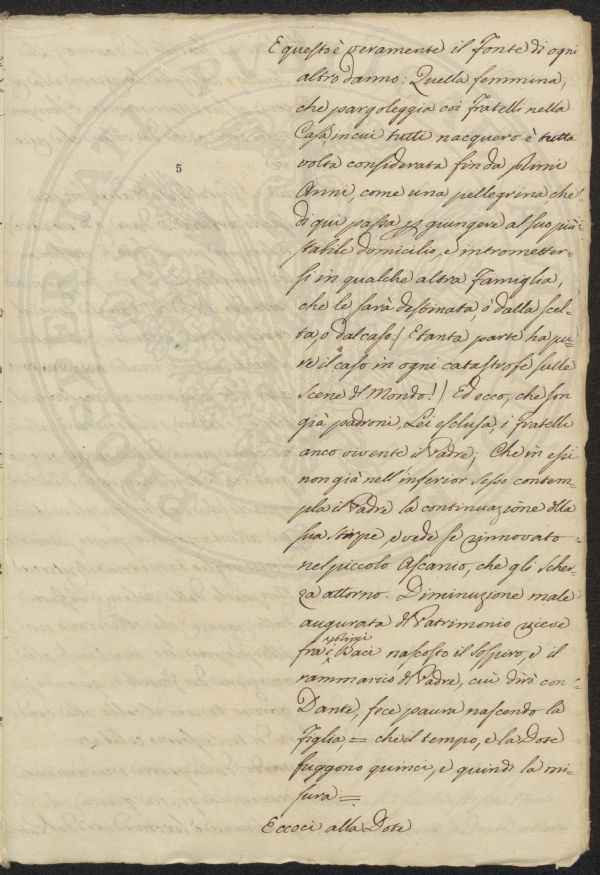 E questo è veramente il Fonte di ogni
altro danno: Quella femmina,
che pargoleggia coi Fratelli nella
Casa, in cui tutti nacquero è tutta
volta considerata fin da primi
Anni, come una pellegrina che
5
di qui passa per giungere al suo più
stabile domicilio, e intrometter-
si in qualche altra Famiglia,
che le sarà destinata, o dalla scel-
ta, o dal caso! E tanta parte ha pu-
re il caso in ogni catastrofe sulle
Scene del Mondo!! Ed ecco, che son
già padroni, Lei esclusa, i Fratelli
anco vivente il Padre; Che in essi
non già nell'inferior sesso contem-
pla il Padre la continuazione della
sua stirpe, e vede se rinnovato
nel piccolo Ascanio, che gli scher-
za attorno. Diminuzione male
augurata di Patrimonio riceve
fra i Baci nascosto il sospiro, e il
rammarico del Padre, cui dirò con
Dante, fece paura nascendo la
Figlia, = che il tempo, e la Dote
fuggono quinci, e quindi la mi-
sura =
Eccoci alla Dote